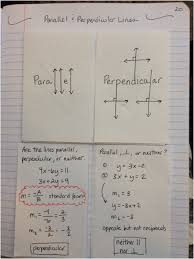 20
Parallel & Perpendicular Lines
Parallel
Perpendicular
Are the lines parallel,
perpendicular, or neither.
4x-6y=11
3x+2y=9
m = -A/B standard form
m₁ = -4/-6 = 2/3
m₂ = -3/2
perpendicular
Parallel, ⊥, or neither?
① y = 3x-2
② 3x+y=2
m₁ = 3
y = -3x+2
m₂ = -3
opposite but not reciprocals
neither ||
nor ⊥